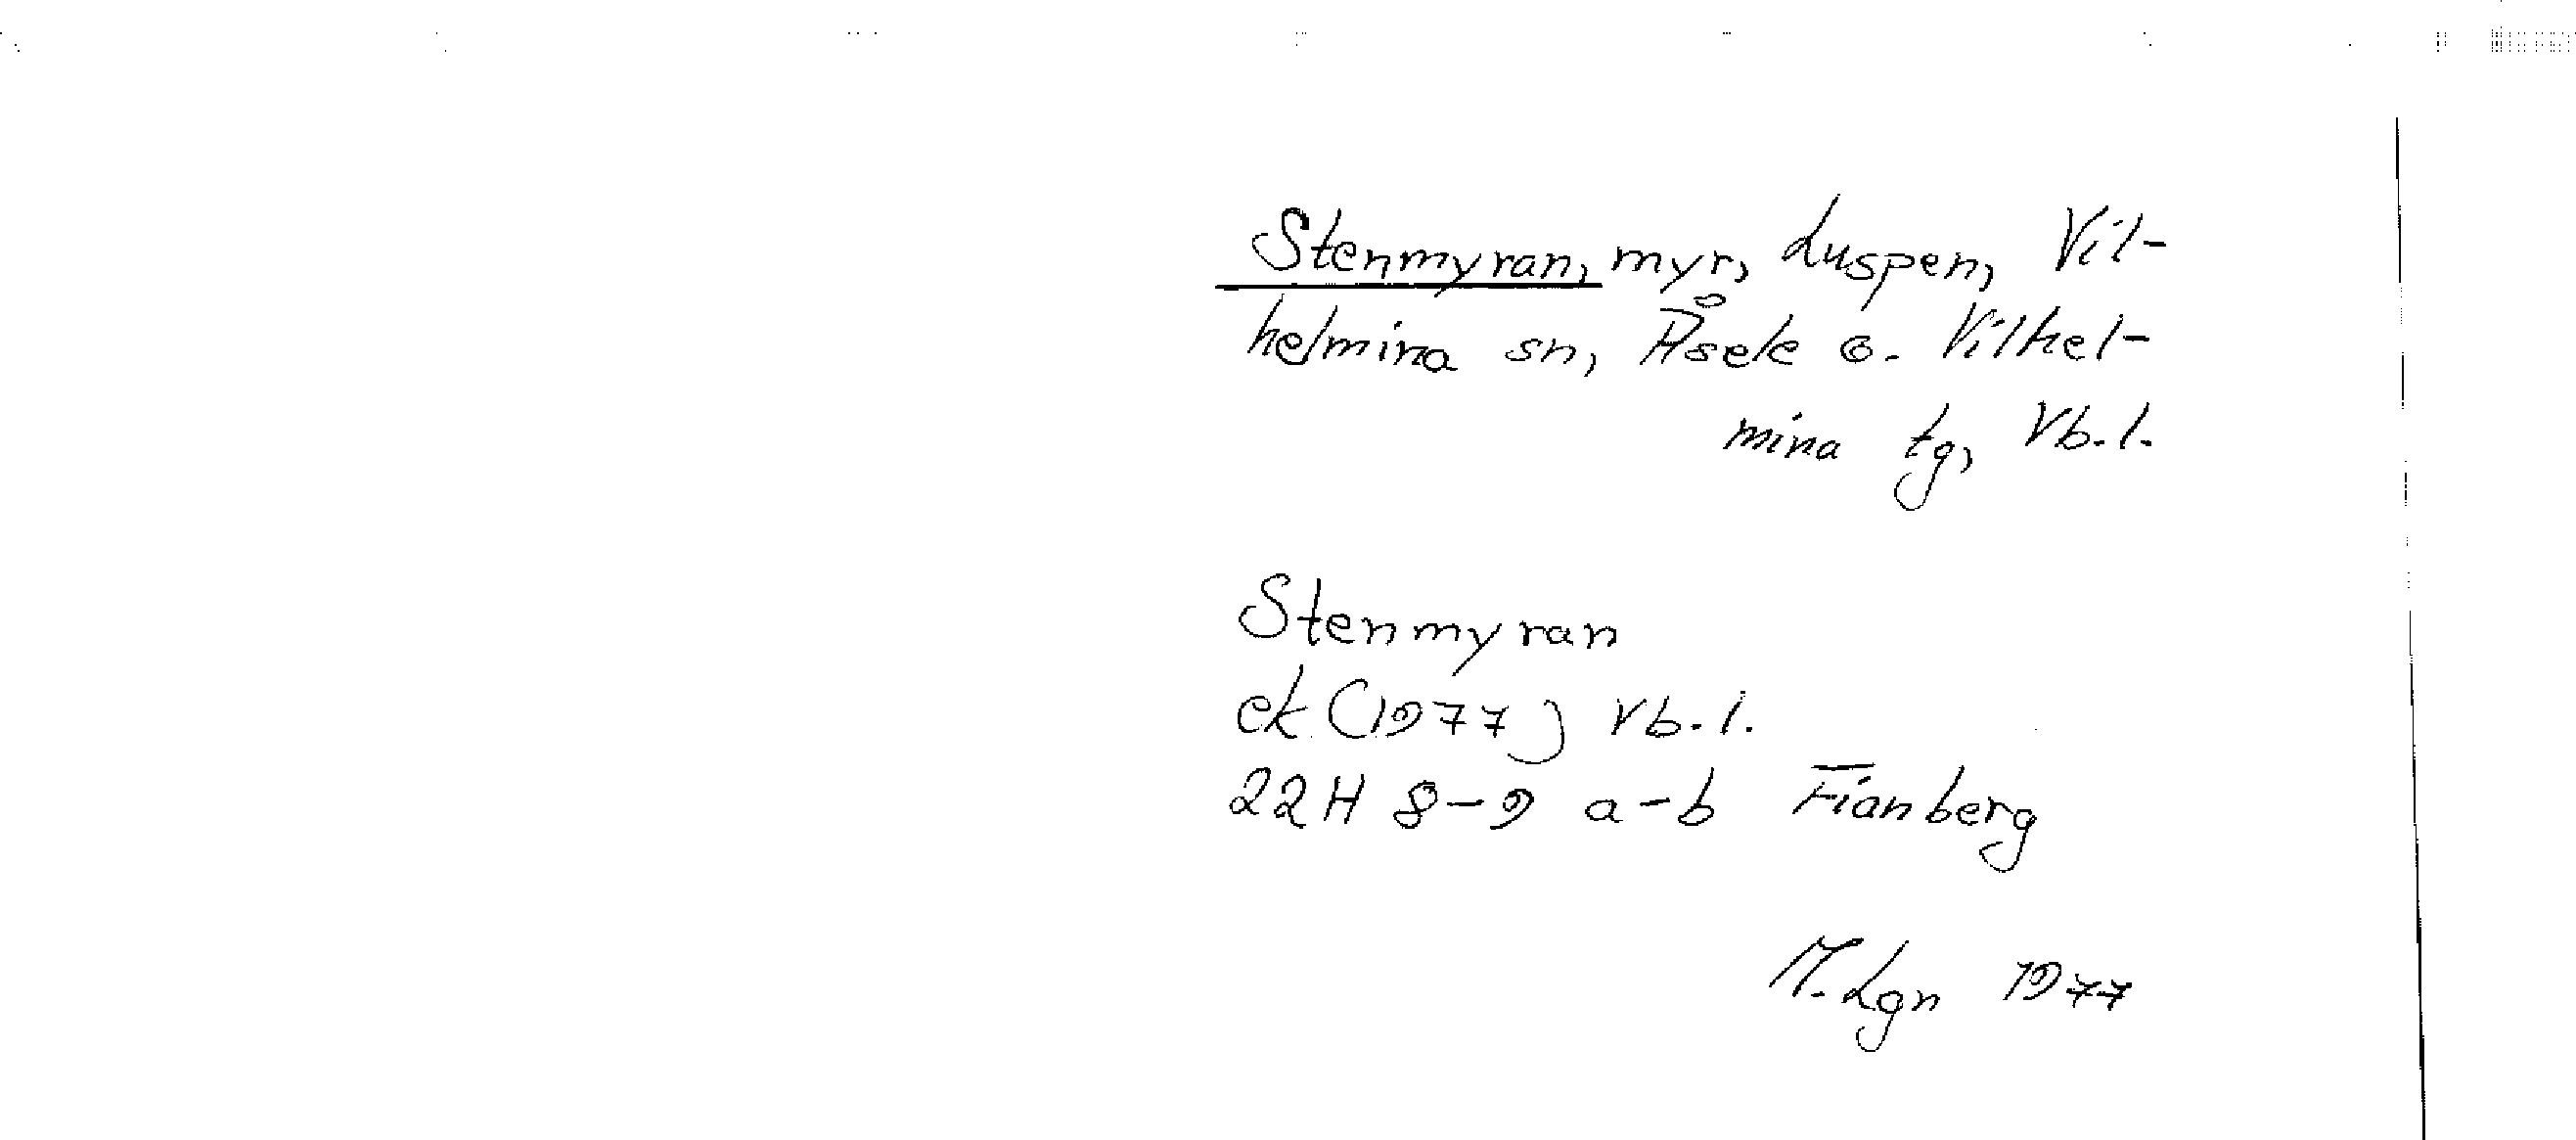 Stenmyran, myr, Luspen, Vil-
helmina sn, Åsele o. Vilhel-
mina tg, Vb. l.
Stenmyran
ek (1977) Vb. l.
22H 8-9 a-b Fianberg
M. Lgn 1977